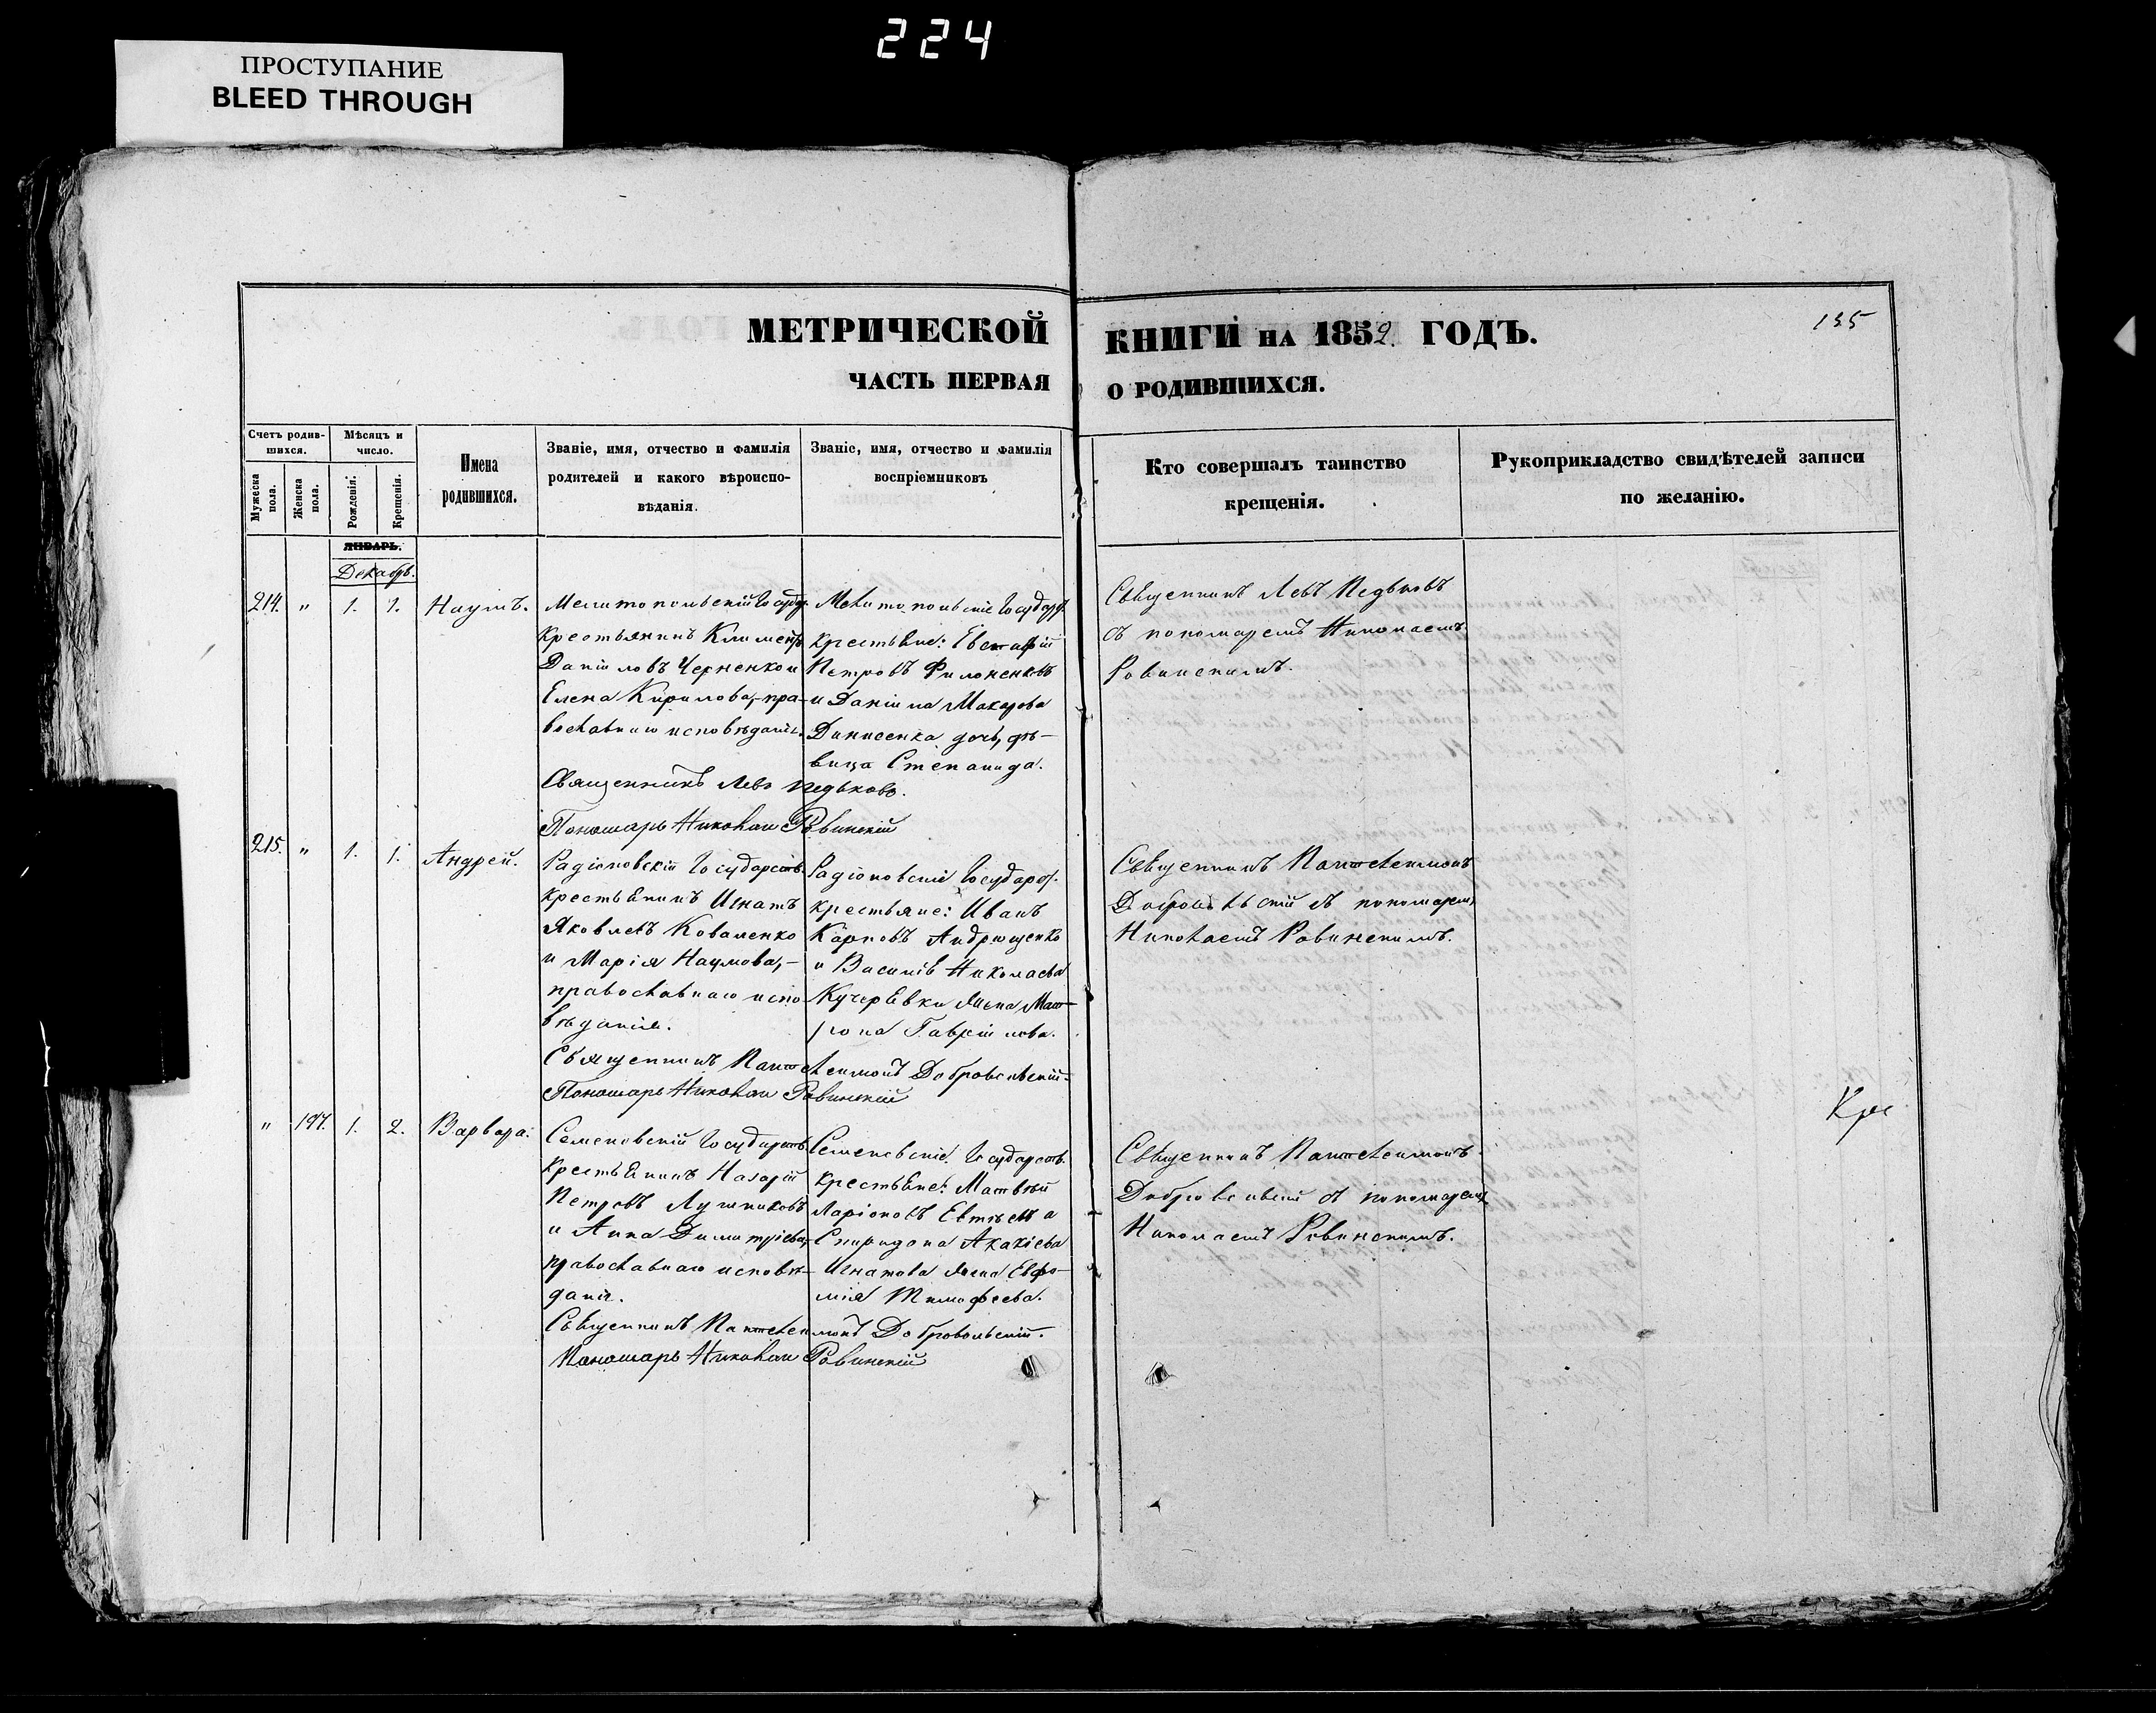 224
ПРОСТУПАНИЕ
BLEED THROUGH
МЕТРИЧЕСКОЙ КНИГИ НА 1852. ГОДЪ.
135
ЧАСТЬ ПЕРВАЯ О РОДИВШИХСЯ.
Счетъ родив-
шихся.
Мужеска пола.
Женска пола.
Мѣсяцъ и
число.
Рожденія.
Крещенія.
Имена
родившихся.
Званіе, имя, отчество и фамилія
родителей и какого вѣроиспо-
вѣданія.
Званіе, имя, отчество и фамилія
воспріемниковъ
Кто совершалъ таинство
крещенія.
Рукоприкладство свидѣтелей записи
по желанію.
ЯНВАРЬ.
Декабрь.
214. " 1. 1. Наумъ.
Мелитопольскій Государ.
крестьянинъ Климентъ
Даніиловъ Черненко и
Елена Кирилова,-пра-
вославнаго исповѣданія.
Мелитопольскіе Государ.
крестьяне: Евстафій
Петровъ Филоненковъ
и Даніила Макарова
Динисенка дочь, дѣ-
вица Степанида.
Священникъ Левъ Педьковъ
съ пономаремъ Николаемъ
Ровинскимъ.
Священникъ Левъ Педьковъ.
Пономарь Николай Ровинскій
215. " 1. 1. Андрей.
Радіоновскій Государств.
крестьянинъ Игнатъ
Яковлевъ Коваленко
и Марія Наумова,-
православнаго испо-
вѣданія.
Радіоновскіе Государ.
крестьяне: Иванъ
Карповъ Андрющенко
и Василія Николаева
Кучерявки жена Мат-
рона Гавріилова.
Священникъ Пантелеимонъ
Добровольскій съ пономаремъ
Николаемъ Ровинскимъ.
Священникъ Пантелеимонъ Добровольскій.
Пономарь Николай Ровинскій
" 197. 1. 2. Варвара.
Семеновскій Государств.
крестьянинъ Назарій
Петровъ Лушниковъ
и Анна Димитріева,
православнаго исповѣ-
данія.
Семеновскіе Государств.
крестьяне: Матвѣй
Ларіоновъ Евтѣевъ а
Спиридона Акакіева
Игнатова жена Евфи-
мія Тимофеева.
Священникъ Пантелеимонъ
Добровольскій съ пономаремъ
Николаемъ Ровинскимъ.
Священникъ Пантелеимонъ Добровольскій.
Пономарь Николай Ровинскій
Кре